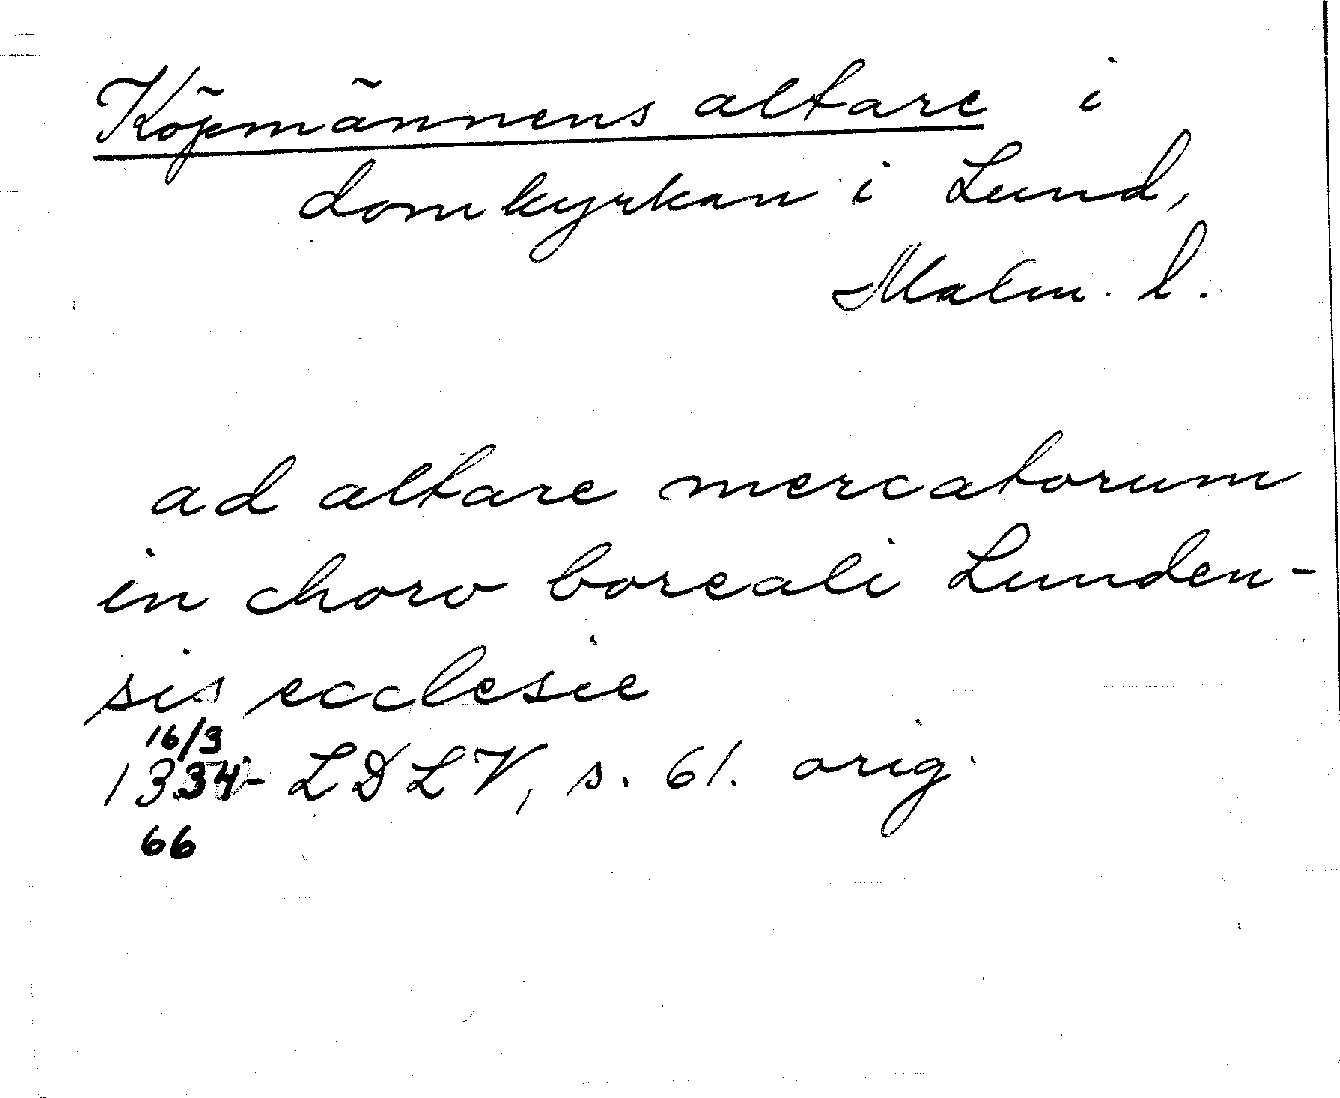 Köpmännens altare i
domkyrkan i Lund,
Malm. l.
ad altare mercatorum
in choro boreali Lunden-
sis ecclesie
16/3
1334- LDLV, s. 61. orig.
66